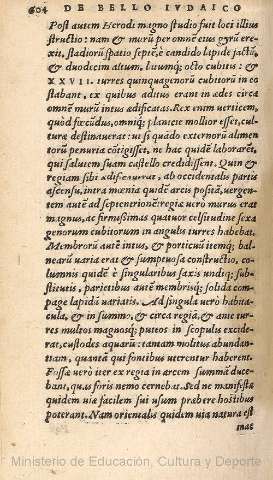 604 DE BELLO IVDAICO
Post autem Herodi magno studio fuit loci illius
structio: nam & murũ per omnẽ eius gyrũ ere-
xit, stadiorũ spatio septẽ, è candido lapide factũ,
& duodecim altum, latumq; octo cubitis: &
XXVII. turres quinquagenorũ cubitorũ in eo
stabant, ex quibus aditus erant in ædes circa
omnẽ murũ intus ædificatas. Rex enim verticem,
quòd fœcũdus, omniq; planicie mollior esset, cul-
turæ destinauerat: ut si quãdo externorũ alimen-
torũ penuria cõtigisset, ne hac quidẽ laborarẽt,
qui salutem suam castello credidissent. Quin &
regiam sibi ædificauerat, ab occidentalis partis
ascensu, intra mœnia quidẽ arcis positã, vergen-
tem autẽ ad septentrionẽ: regiæ verò murus erat
magnus, ac firmißimus quatuor celsitudine sexa
genorum cubitorum in angulis turres habebat.
Membrorũ autẽ intus, & porticuũ itemq; bal-
nearũ varia erat & sumptuosa constructio, co-
lumnis quidẽ è singularibus saxis undiq; sub-
stitutis, parietibus autẽ membrisq; solida com-
page lapidũ variatis. Ad singula verò habita-
cula, & in summo, & circa regiã, & ante tur-
res multos magnosq; puteos in scopulis excide-
rat, custodes aquarũ: tantam molitus abundan-
tiam, quantã qui fontibus uterentur haberent.
Fossæ verò iter ex regia in arcem summã duce-
bant, quæ foris nemo cernebat. Sed ne manifestæ
quidem uiæ facilem sui usum præbere hostibus
poterant. Nam orientalis quidem uia natura est
inac
Ministerio de Educación, Cultura y Deporte